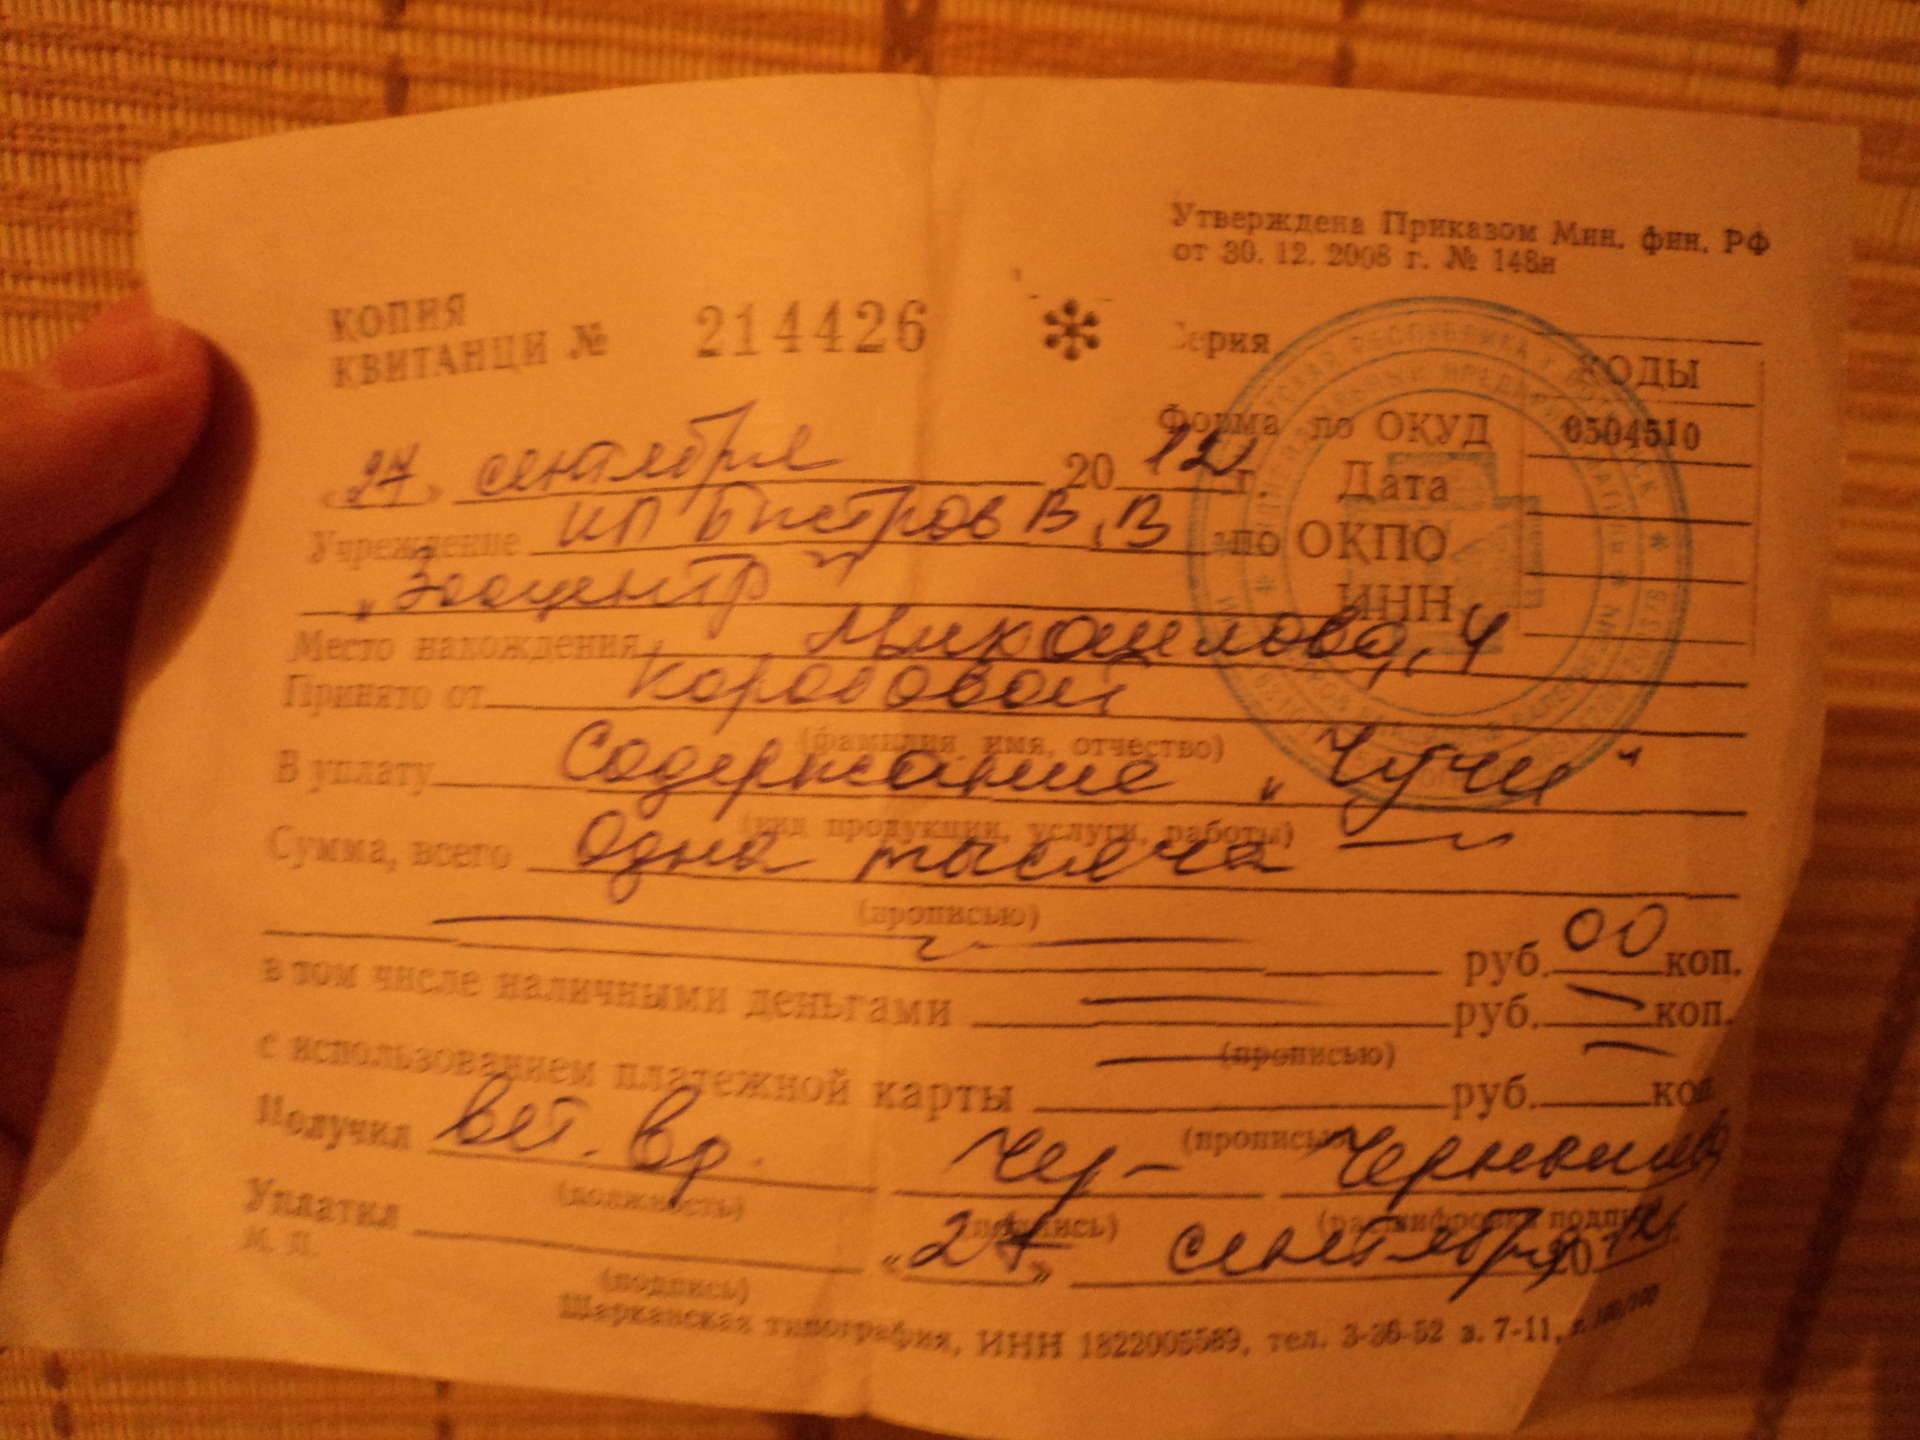 Утверждена Приказом Мин. фин. РФ
от 30. 12. 2008 г. № 148н
КОПИЯ
КВИТАНЦИ № 214426 *
Серия
КОДЫ
Форма по ОКУД 0504510
«27» сентября 2012 г. Дата
Учреждение ИП Быстров В.В по ОКПО
"Зооцентр" ИНН
Место нахождения 4
Принято от Коробовой
(фамилия, имя, отчество)
В уплату Содержание "Чучи"
(вид продукции, услуги, работы)
Сумма, всего Одна тысяча
(прописью)
руб. 00 коп.
в том числе наличными деньгами руб. коп.
(прописью)
с использованием платежной карты руб. коп.
(прописью)
Получил вет. вр. Чер-
(должность) (подпись) (расшифровка подписи)
Уплатил «27» сентября 2012
М. П.
(подпись)
Шарканская типография, ИНН 1822005589, тел. 3-36-52 з. 7-11,